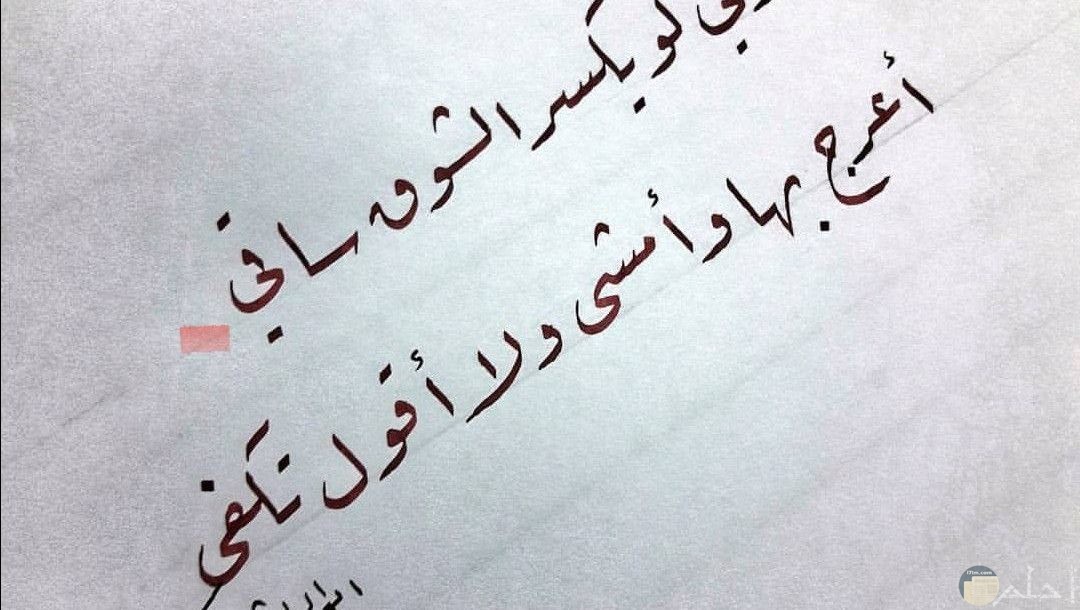 لو يكسر الشوق ساقي
أعرج بها وأمشى ولا أقول تكفى
احلم